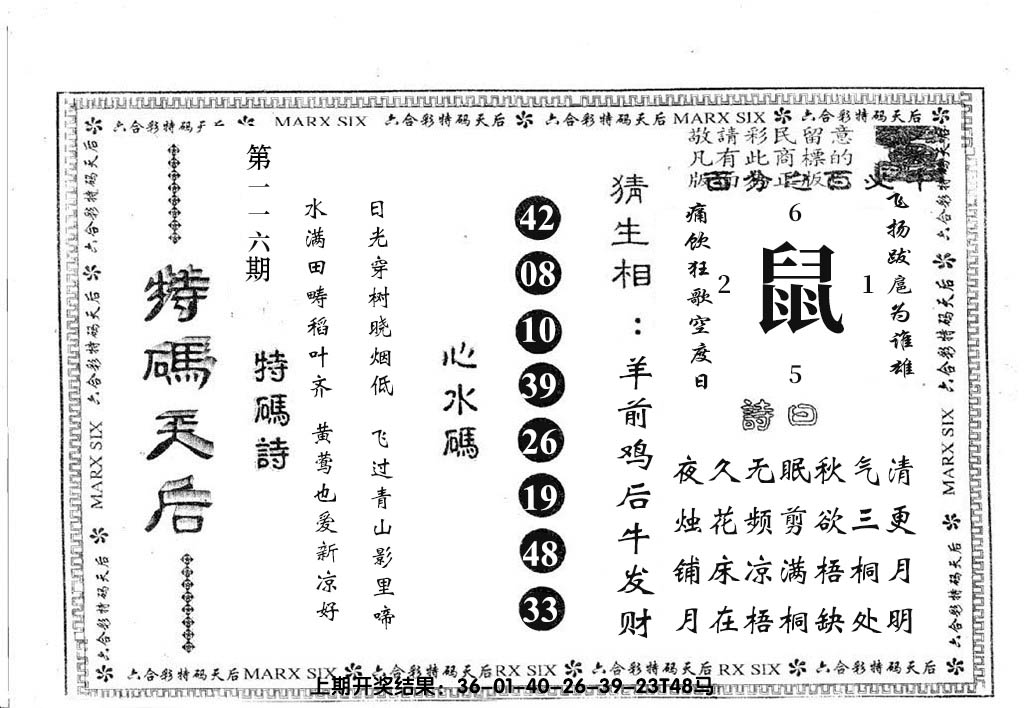 六合彩特码 MARX SIX 六合彩特码天后 六合彩特码天后 MARX SIX 六合彩特码天后
敬請彩民留意
凡有此商標的
版面为正版
飞扬跋扈为谁雄
痛饮狂歌空度日
6
2 鼠 1
5
詩曰
夜久无眠秋气清
烛花频剪欲三更
铺床凉满梧桐月
月在梧桐缺处明
猜生相：羊前鸡后牛发财
42
08
10
39
26
19
48
33
心水碼
日光穿树晓烟低 飞过青山影里啼
水满田畴稻叶齐 黄莺也爱新凉好
特碼詩
第一一六期
特碼天后
六合彩特码天后 六合彩特码天后 MARX SIX 六合彩特码天后
六合彩特码天后 六合彩特码天后 MARX SIX 六合彩特码天后
六合彩特码天后 MARX SIX 六合彩特码天后 RX SIX 六合彩特码天后 RX SIX 六合彩特码天后
上期开奖结果：36-01-40-26-39-23T48马